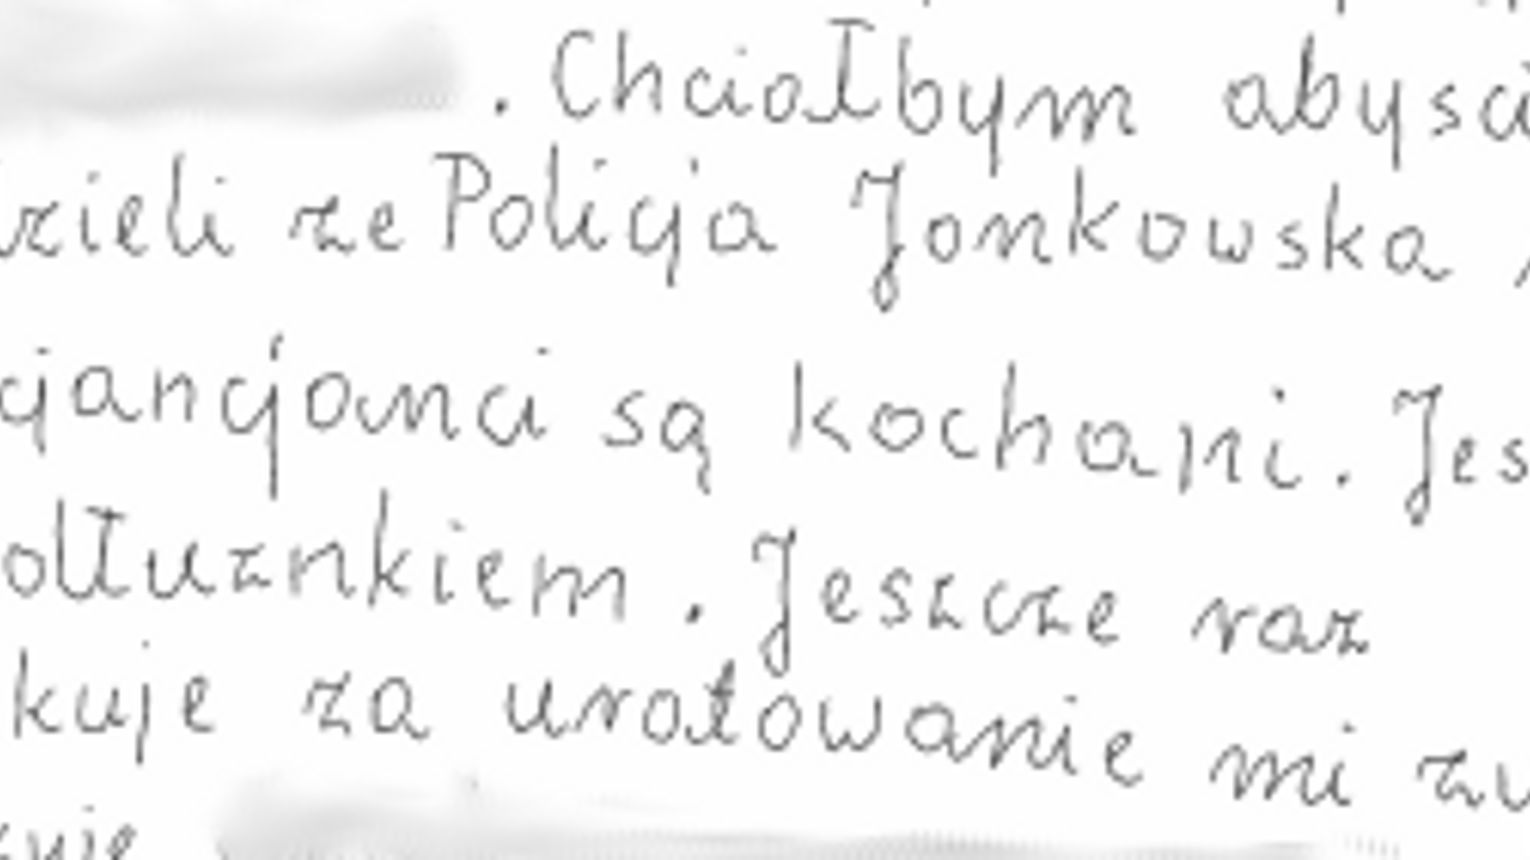 . Chciałbym abyści
dzieli ze Policja Jonkowska
cjancjanci są kochani. Jes
ołtuznkiem. Jeszcze raz
kuje za uratowanie mi